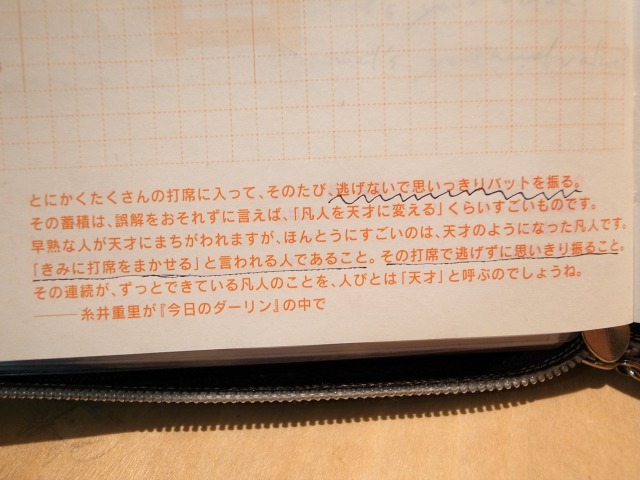 とにかくたくさんの打席に入って、そのたび、逃げないで思いっきりバットを振る。
その蓄積は、誤解をおそれずに言えば、「凡人を天才に変える」くらいすごいものです。
早熟な人が天才にまちがわれますが、ほんとうにすごいのは、天才のようになった凡人です。
「きみに打席をまかせる」と言われる人であること。その打席で逃げずに思いきり振ること。
その連続が、ずっとできている凡人のことを、人びとは「天才」と呼ぶのでしょうね。
――糸井重里が『今日のダーリン』の中で